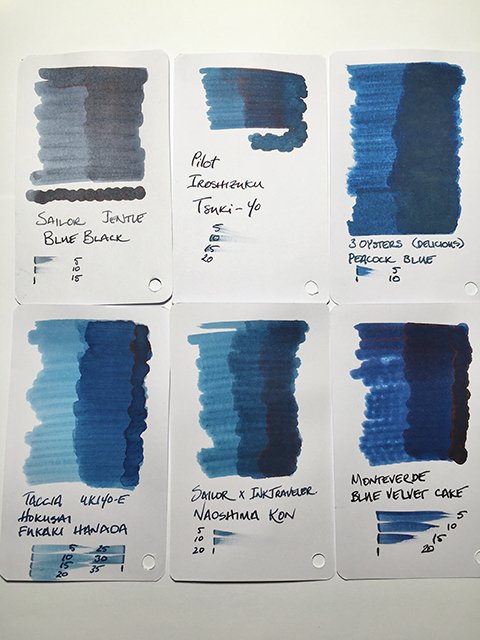 SAILOR JENTLE
BLUE BLACK
5
10
15
Pilot
IROSHIZUKU
TSUKI-YO
5
10
15
20
3 OYSTERS (DELICIOUS)
PEACOCK BLUE
5
10
TACCIA UKIYO-E
HOKUSAI
FUKAKI HANADA
5 25
10 30
15 35
20 1
SAILOR X INKTRAVELER
NAOSHIMA KON
5
10
20 1
MONTEVERDE
BLUE VELVET CAKE
5
10
15
1 20